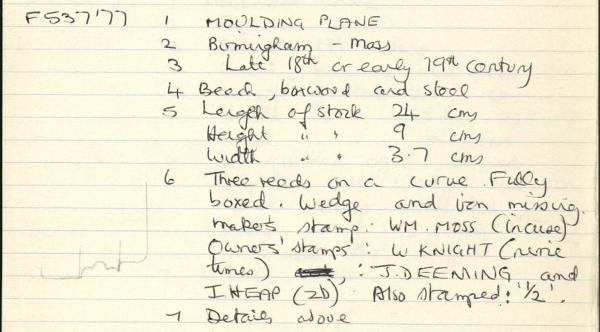 F537'77 1 MOULDING PLANE
2 Birmingham - Moss
3 Late 18th or early 19th century
4 Beech, boxwood and steel
5 Length of stock 24 cms
Height " " 9 cms
Width " " 3.7 cms
6 Three reeds on a curve. Fully
boxed. Wedge and iron missing.
Maker's stamp: WM. MOSS (incuse)
Owners' stamps: W KNIGHT (nine
times) : J. DEEMING and
I HEAP (2b) Also stamped: '1/2'.
7 Details above